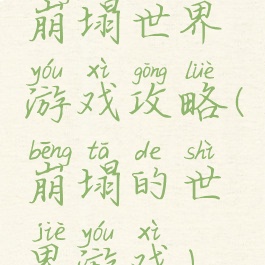 崩塌世界
yóu xì gōng lüè
游戏攻略(
bēng tā de shì
崩塌的世
jiè yóu xì
界游戏)